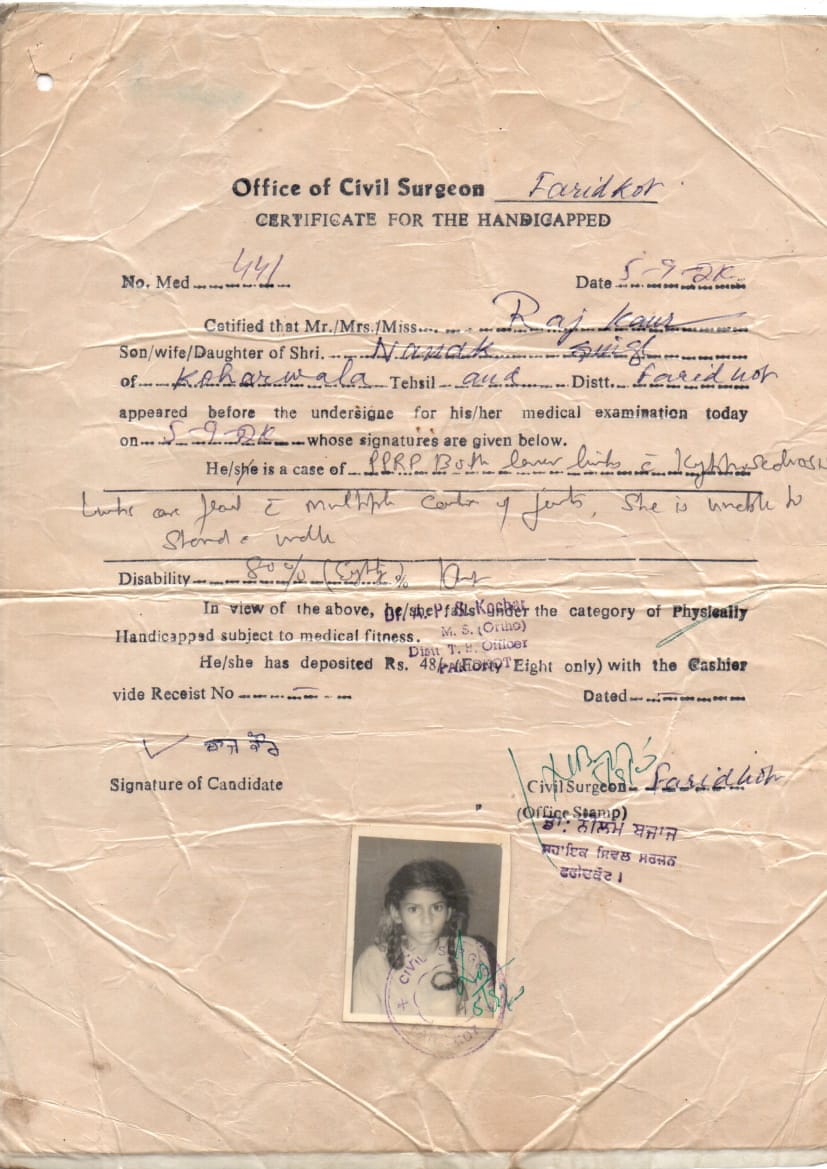 Office of Civil Surgeon Faridkot
CERTIFICATE FOR THE HANDICAPPED
No. Med 441
Date 5-9-
Cetified that Mr./Mrs./Miss. Raj Kaur
Son/wife/Daughter of Shri. Nanak Singh
of Koharwala Tehsil and Distt. Faridkot
appeared before the undersigne for his/her medical examination today
on 5-9- whose signatures are given below.
He/she is a case of PPRP Both lower limbs c
Limbs are c multiple of joints, She is unable to
Stand & walk
Disability 80% (Eighty %)
In view of the above, he/she falls under the category of Physically
Handicapped subject to medical fitness.
Kochar
M. S. (Ortho)
T. B. Officer
FARIDKOT
He/she has deposited Rs. 48/- (Forty Eight only) with the Cashier
vide Receist No
Dated
ਰਾਜ ਕੌਰ
Signature of Candidate
Civil Surgeon Faridkot
(Office Stamp)
ਡਾ: ਨੀਲਮ ਬਜਾਜ
ਸਹਾਇਕ ਸਿਵਲ ਸਰਜਨ
ਫਰੀਦਕੋਟ।
CIVIL